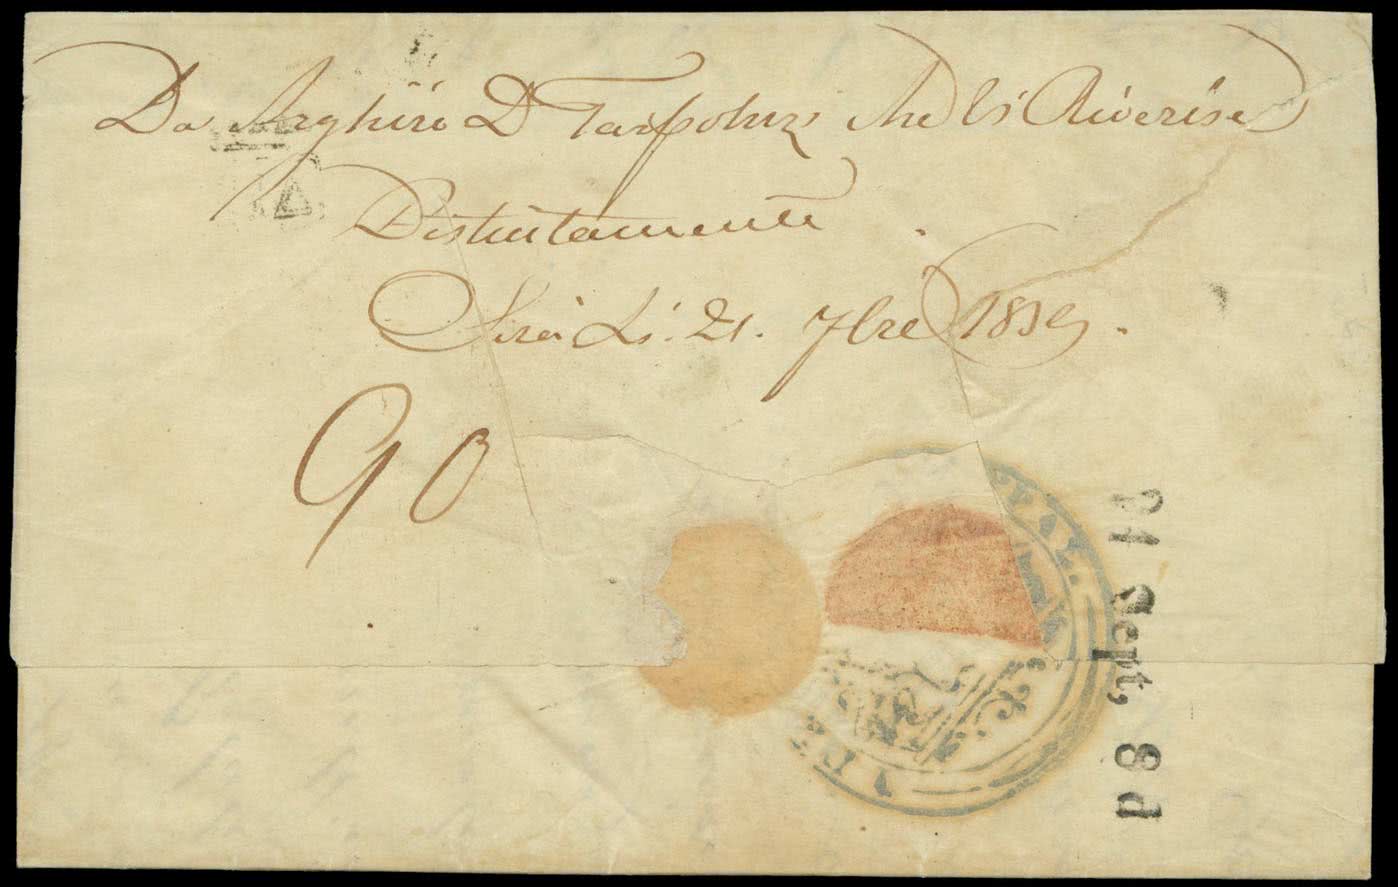 Da Arghiri D Tarpohzi che li Riverisce
Distintamente
Sira Li: 21. 7bre 1839.
90
21 Sept, 8 d